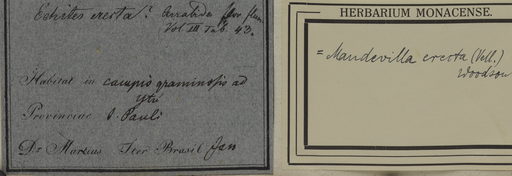 Echites erecta? Cerratides flor flum
Vol III Tab. 43.
Habitat in campis graminosis ad
Ytú
Provinciae S. Pauli
Dr Martius Iter Brasil Jan
HERBARIUM MONACENSE.
= Mandevilla erecta (Vell.)
Woodson